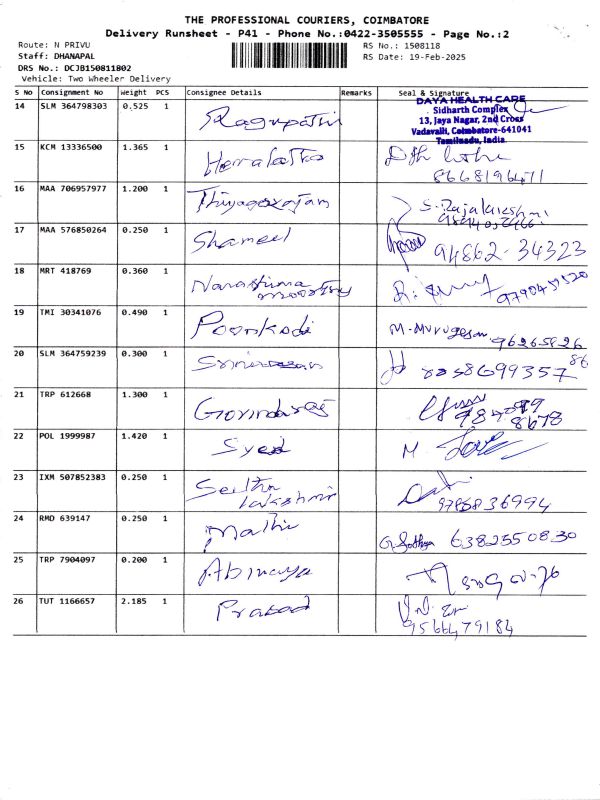 THE PROFESSIONAL COURIERS, COIMBATORE
Delivery Runsheet - P41 - Phone No.:0422-3505555 - Page No.:2
Route: N PRIVU RS No.: 1508118
Staff: DHANAPAL RS Date: 19-Feb-2025
DRS No.: DCJB150811802
Vehicle: Two Wheeler Delivery
S No Consignment No Weight PCS Consignee Details Remarks Seal & Signature
14 SLM 364798303 0.525 1 Ragupathi
DAYA HEALTH CARE
Sidharth Complex
13, Jaya Nagar, 2nd Cross
Vadavalli, Coimbatore-641041
Tamilnadu, India.
15 KCM 13336500 1.365 1
8668196471
16 MAA 706957977 1.200 1 Thiyagarajan S. Rajalakshmi
17 MAA 576850264 0.250 1 Shameel 94862-34323
18 MRT 418769 0.360 1 Narashima
moorthy
19 TMI 30341076 0.490 1 Poonkodi M. Murugesan
20 SLM 364759239 0.300 1 Srinivasan
21 TRP 612668 1.300 1 Govindaraj
22 POL 1999987 1.420 1 Syed M.
23 IXM 507852383 0.250 1 Sethu
lakshmi
24 RMD 639147 0.250 1 Mathi G. Sathya 6382550830
25 TRP 7904097 0.200 1 Abinaya
26 TUT 1166657 2.185 1 Prasad
9566479184